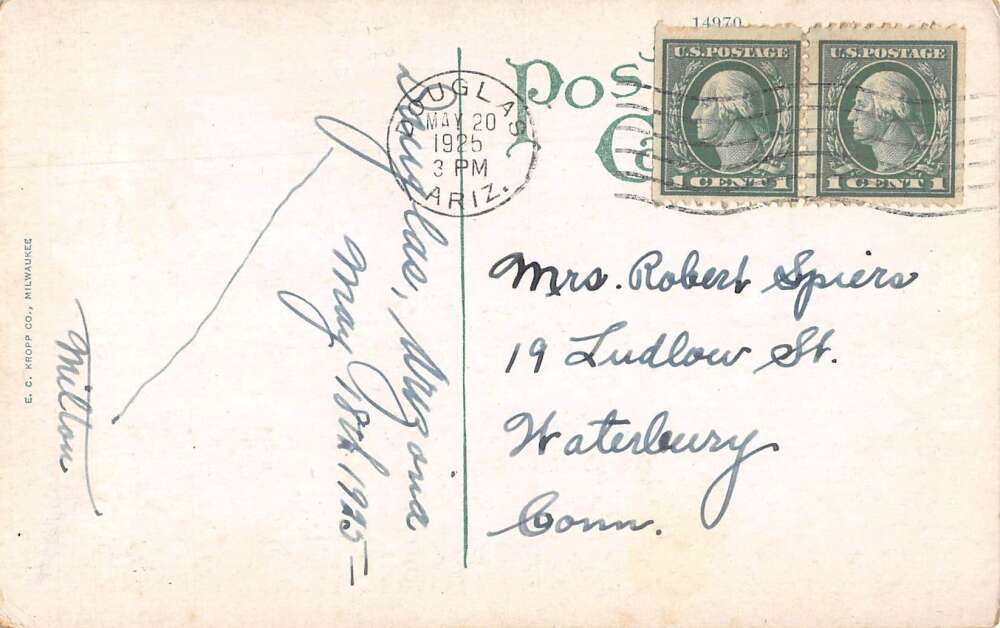 14970
U.S. POSTAGE
1 CENT 1
U.S. POSTAGE
1 CENT 1
Pos
Ca
DOUGLAS
MAY 20
1925
3 PM
ARIZ.
Douglas, Arizona
May 18th 1925
Milton
Mrs. Robert Spiers
19 Ludlow St.
Waterbury
Conn.
E. C. KROPP CO., MILWAUKEE